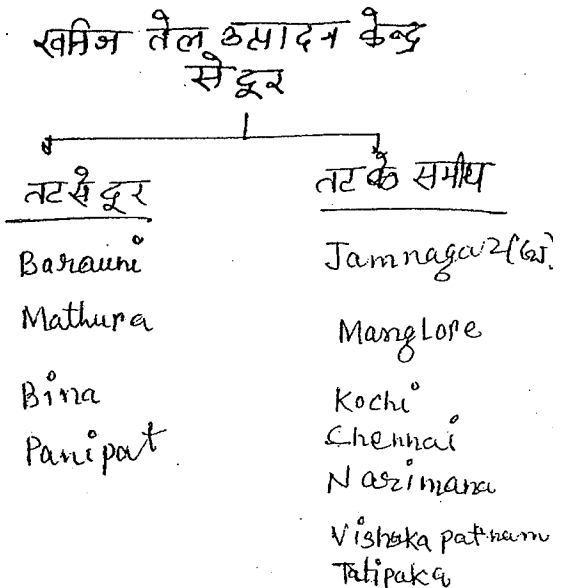 खनिज तेल उत्पादन केन्द्र
से दूर
तट से दूर
Barauni
Mathura
Bina
Panipat
तट के समीप
Jamnagar
Manglore
Kochi
Chennai
Narimana
Vishakapatnam
Tatipaka